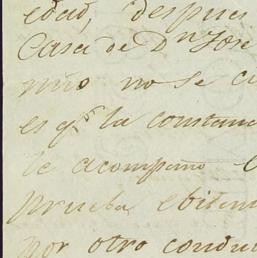 edad, despues
Casa de Dn Jose
mio no se c
es qe la constan
te acompaño
prueba ebiten
por otro condu